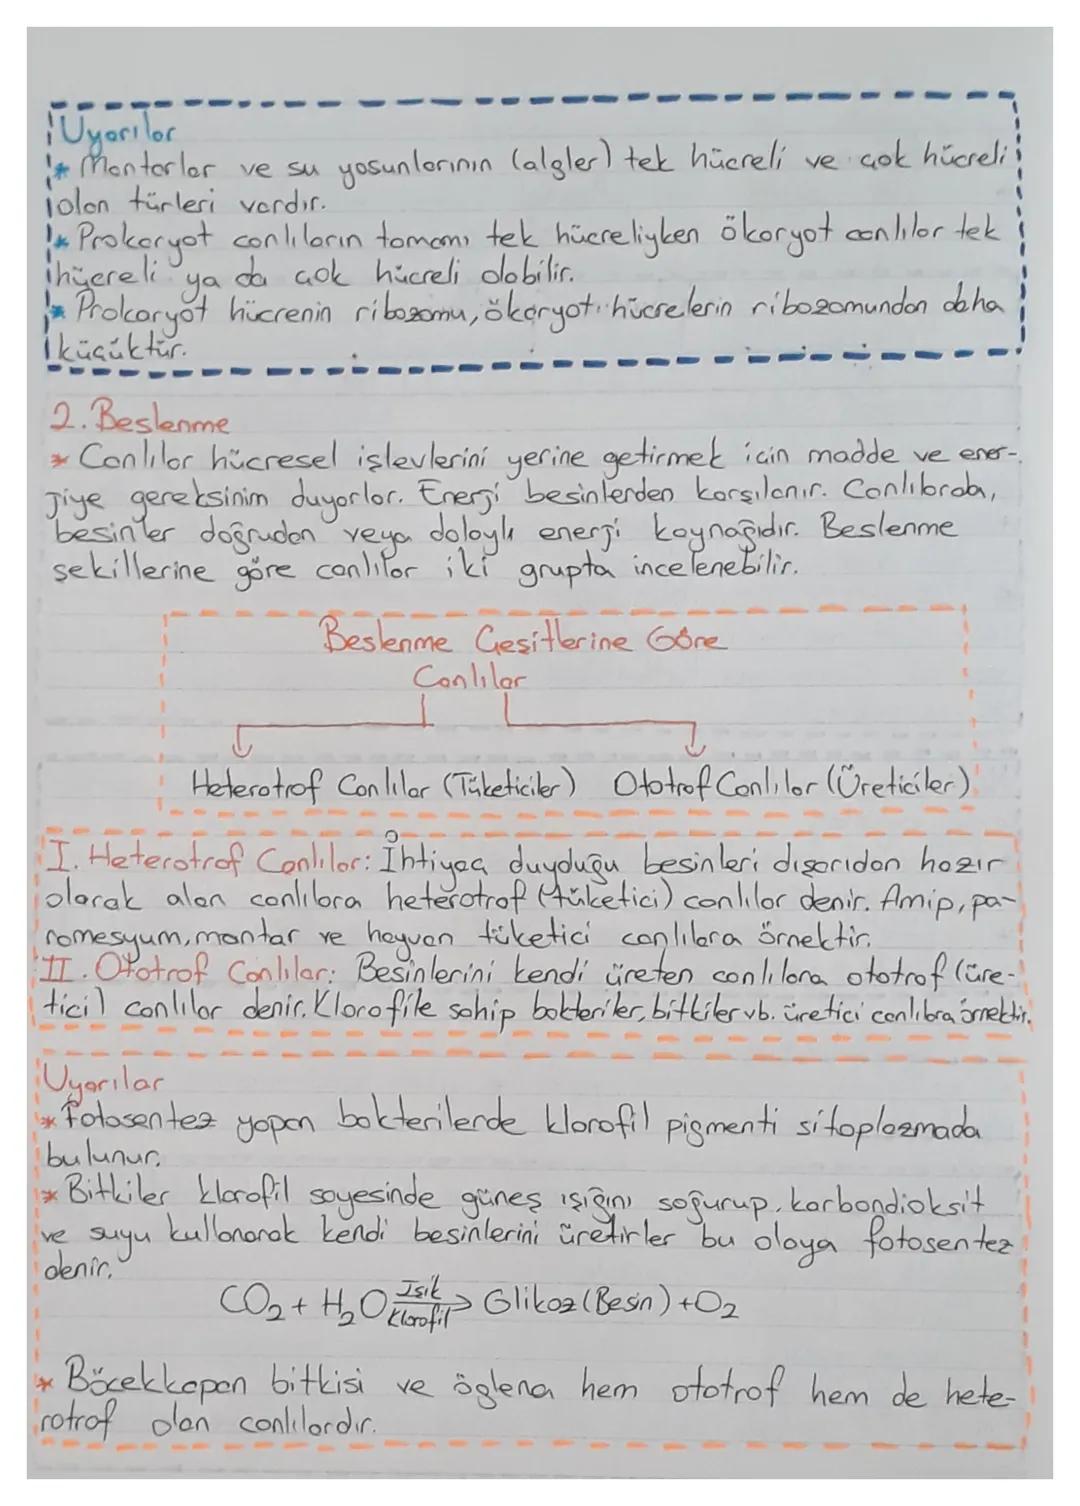 Uyarılar
* Mantarlar ve su yosunlarının (algler) tek hücreli ve çok hücreli
olan türleri vardır.
* Prokaryot canlıların tamamı tek hücreliyken ökaryot canlılar tek
hücreli ya da çok hücreli olabilir.
* Prokaryot hücrenin ribozomu, ökaryot hücrelerin ribozomundan daha
küçüktür.
2. Beslenme
* Canlılar hücresel işlevlerini yerine getirmek için madde ve ener-
jiye gereksinim duyarlar. Enerji besinlerden karşılanır. Canlılarda,
besinler doğrudan veya dolaylı enerji kaynağıdır. Beslenme
şekillerine göre canlılar iki grupta incelenebilir.
Beslenme Çeşitlerine Göre
Canlılar
Heterotrof Canlılar (Tüketiciler) Ototrof Canlılar (Üreticiler)
I. Heterotrof Canlılar: İhtiyaç duyduğu besinleri dışarıdan hazır
olarak alan canlılara heterotrof (tüketici) canlılar denir. Amip, pa-
ramesyum, mantar ve hayvan tüketici canlılara örnektir.
II. Ototrof Canlılar: Besinlerini kendi üreten canlılara ototrof (üre-
tici) canlılar denir. Klorofile sahip bakteriler, bitkiler vb. üretici canlılara örnektir.
Uyarılar
* Fotosentez yapan bakterilerde klorofil pigmenti sitoplazmada
bulunur.
* Bitkiler klorofil sayesinde güneş ışığını soğurup, karbondioksit
ve suyu kullanarak kendi besinlerini üretirler bu olaya fotosentez
denir.
CO₂ + H₂O Işık Klorofil → Glikoz (Besin) + O₂
* Böcekkapan bitkisi ve öglena hem ototrof hem de hete-
rotrof olan canlılardır.